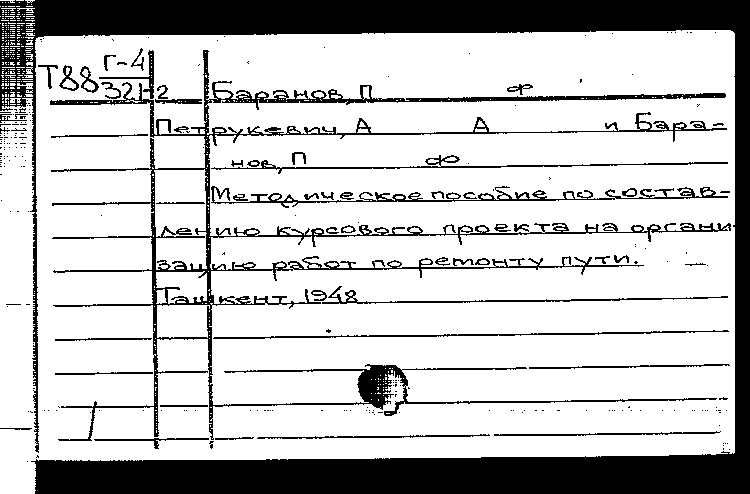 Т88 Г-4
321-2 Баранов, П Ф
Петрукевич, А А и Бара-
нов, П Ф
Методическое пособие по состав-
лению курсового проекта на органи
зацию работ по ремонту пути.
Ташкент, 1948